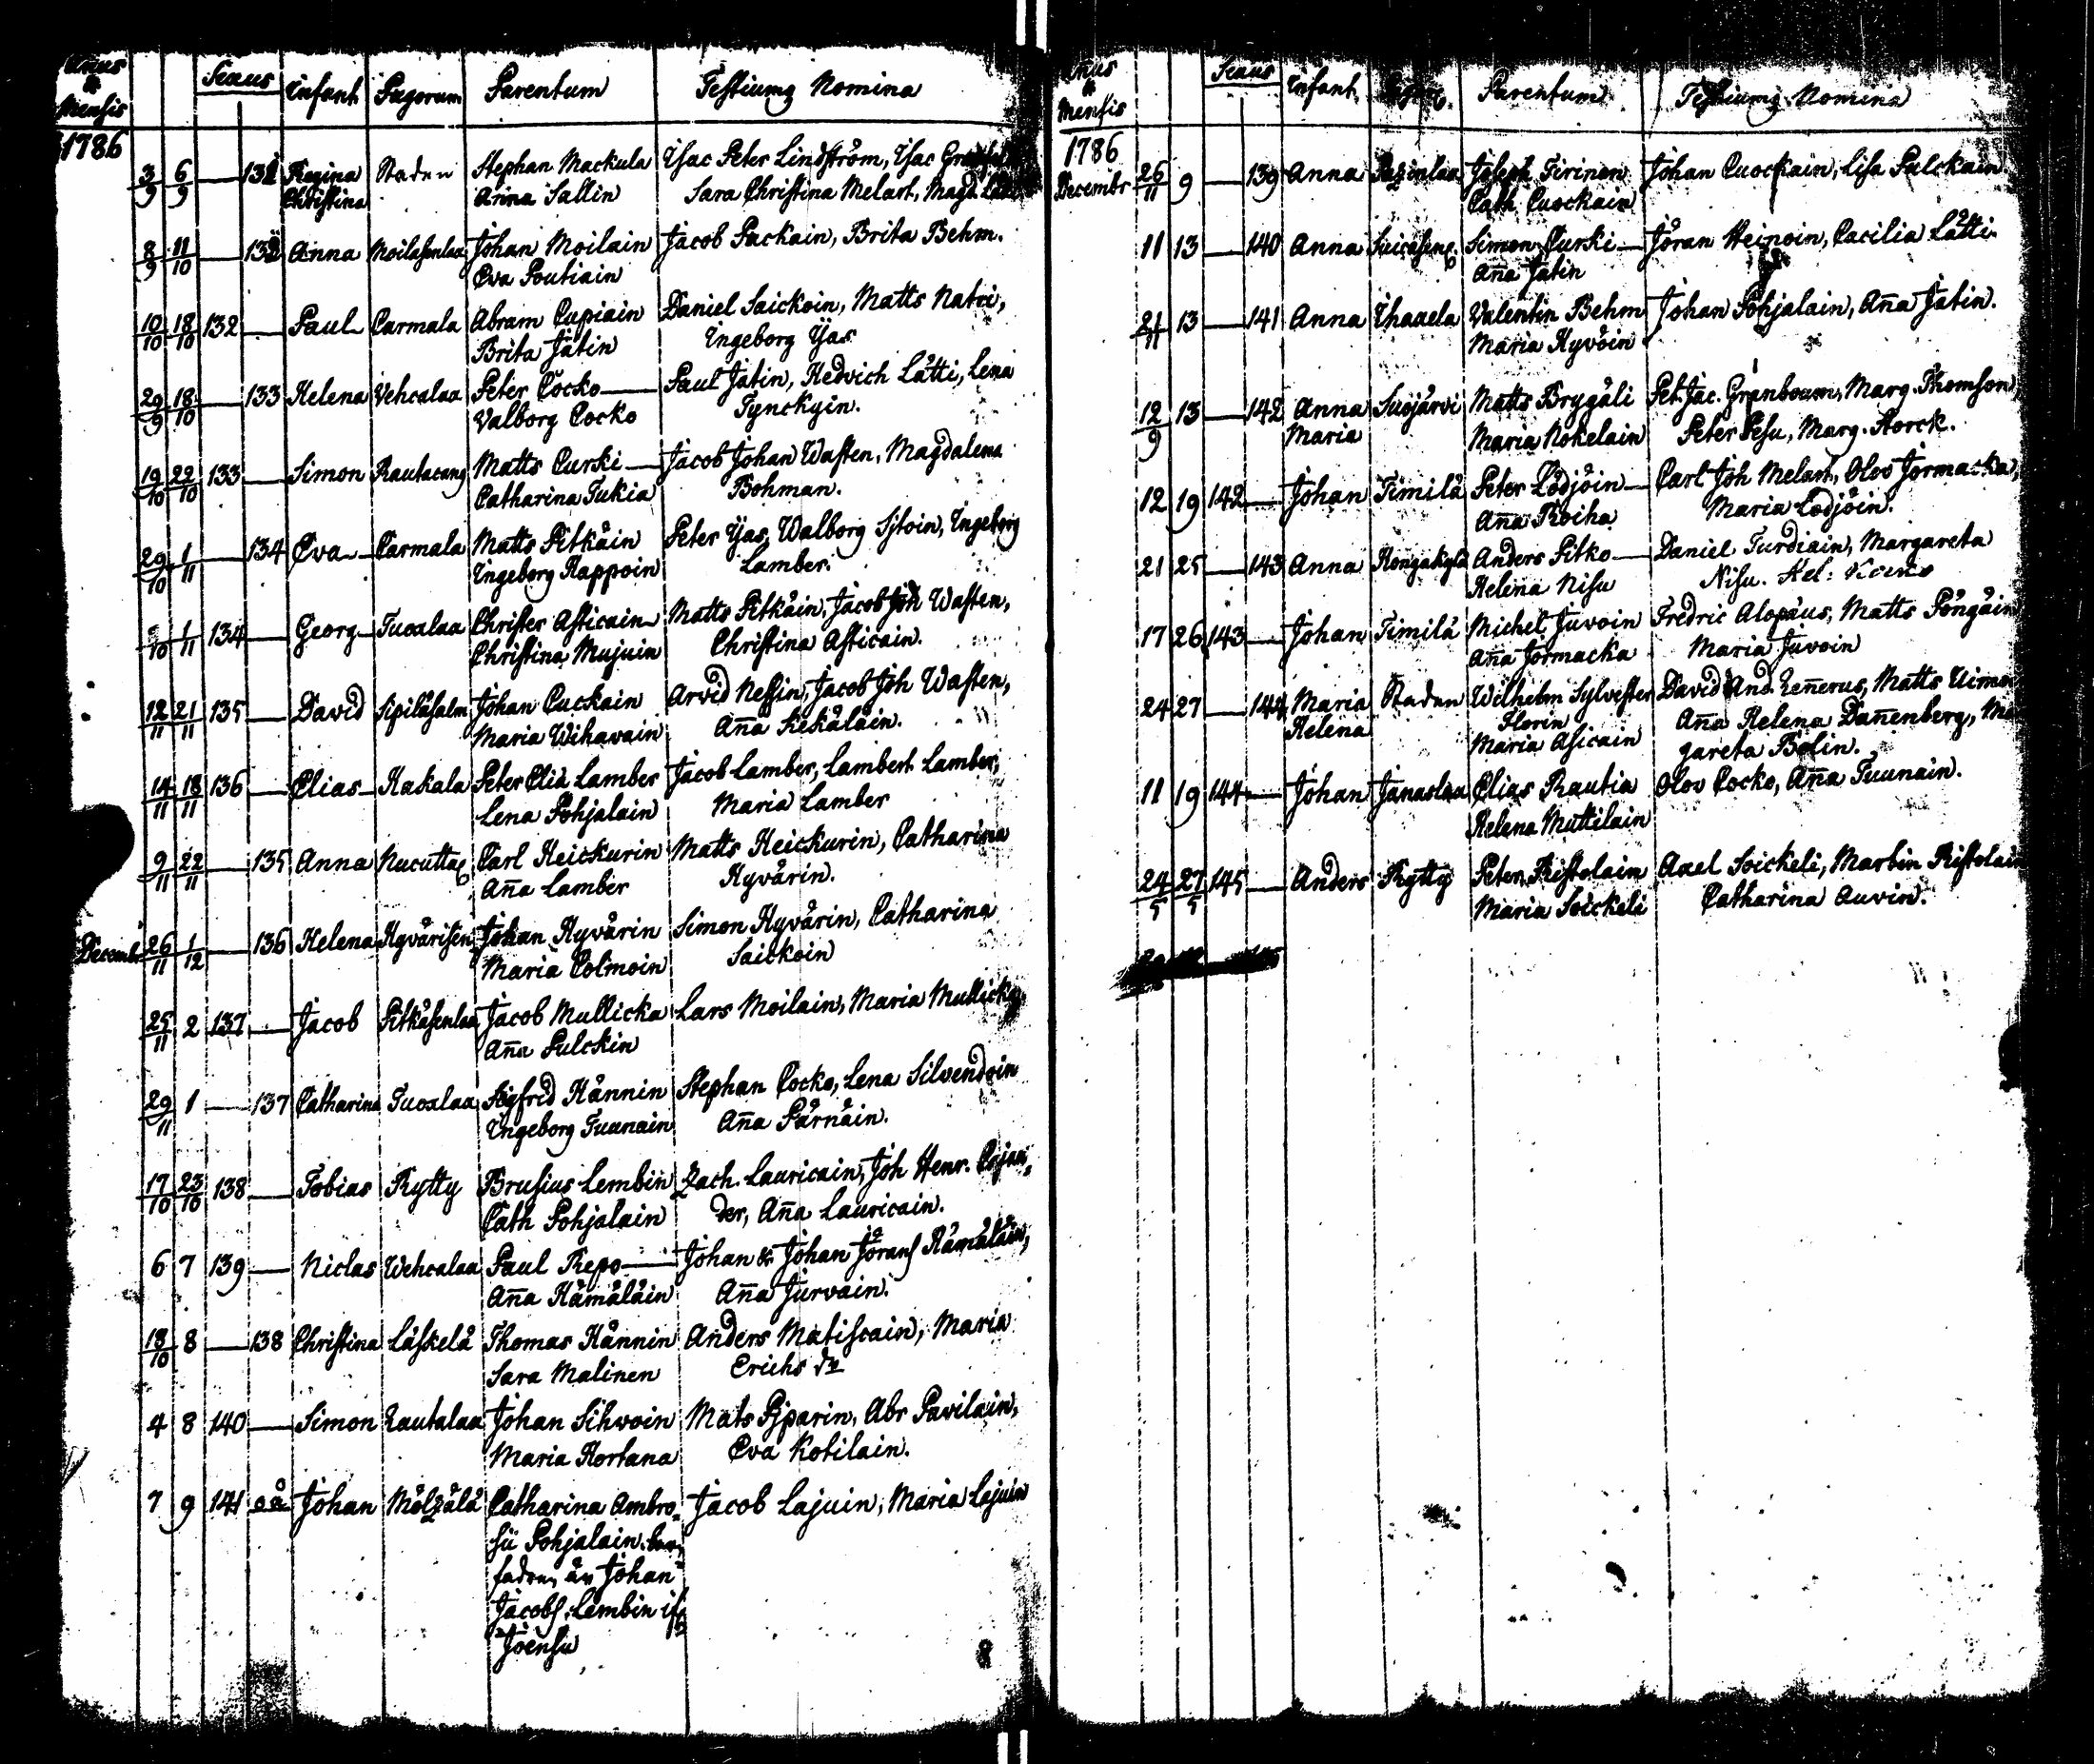 Annus & Mensis Sexus Infant Pagorum Parentum Testiumq Nomina
1786
3/9 6/9 — 131 Regina Staden Stephan Mackula Isac Peter Lindström, Isac
Christina Anna Sallin Sara Christina Melart, Magd.
8/9 11/10 — 132 Anna Moilasenlax Johan Moilain Jacob Packain, Brita Behm.
Eva Poutiain
10/10 18/10 132 — Paul Carmala Abram Cupiain Daniel Saickoin, Matts Natri,
Brita Jätin Ingeborg Yas
29/9 18/10 — 133 Helena Vehcalax Peter Cocko — Paul Jatin, Hedvich Lätti, Lena
Valborg Cocko Tynckyin.
19/10 22/10 133 — Simon Rautacang Matts Curki — Jacob Johan Wasten, Magdalena
Catharina Tukia Bohman.
29/10 1/11 — 134 Eva — Carmala Matts Pitkäin Peter Yas, Walborg Sjloin, Ingeborg
Ingeborg Kappoin Lamber.
/10 1/11 134 — Georg Tuoxlax Christer Asicain Matts Pitkäin, Jacob Joh Wasten,
Christina Mujuin Christina Asicain.
12/11 21/11 135 — David Sipiläsalm Johan Cuckain Arvid Nessin, Jacob Joh Wasten,
Maria Wihavain Aña Kekäläin.
14/11 18/11 136 — Elias Kakala Peter Elia Lamber Jacob Lamber, Lambert Lamber,
Lena Pohjalain Maria Lamber
9/11 22/11 — 135 Anna Nucutta Carl Heickurin Matts Heickurin, Catharina
Aña Lamber Hyvärin.
Decemb 26/11 1/12 — 136 Helena Hyvärisen Johan Hyvärin Simon Hyvärin, Catharina
Maria Colmoin Saickoin
25/11 2 137 — Jacob Pitkäsenlax Jacob Mullicka Lars Moilain, Maria Mullicka
Aña Pulckin
29/11 1 — 137 Catharina Tuoxlax Sigfrid Hännin Stephan Cocko, Lena Silvendoin
Ingeborg Tuunain Aña Pärnäin.
17/10 23/10 138 — Tobias Rytty Brusius Lembin Zach. Lauricain, Joh Henr. Cajan,,
Cath Pohjalain der, Aña Lauricain.
6 7 139 — Niclas Wehcalax Paul Repo — Johan & Johan Jörans Hämäläin,
Aña Hämäläin Aña Jurvain.
18/10 8 — 138 Christina Läskelä Thomas Hännin Anders Matiscain, Maria
Sara Malinen Erichs dr
4 8 140 — Simon Rautalax Johan Sihvoin Mats Pjparin, Abr Pavilain,
Maria Hortana Eva Kotilain.
7 9 141 oä Johan Mölzälä Catharina Ambro,, Jacob Lajuin, Maria Lajuin
sii Pohjalain. bar,,
fadren är Johan
Jacobs. Lembin
Joensu
Annus & Mensis Sexus Infant Parentum Testiumq Nomina
1786
Decembr 26/11 9 — 139 Anna Joseph Tirinen Johan Cuockain, Lisa Pulckain
Cath Cuockain
11 13 — 140 Anna Simon Curki — Jöran Heinoin, Cæcilia Lätti
Aña Jatin
21/11 13 — 141 Anna Ihaxela Valentin Behm Johan Pohjalain, Aña Jatin.
Maria Hyvöin
12/9 13 — 142 Anna Suojärvi Matts Brygäli Pet. Jac. Granboum, Marg. Thomson,
Maria Maria Nokelain Peter Pesu, Marg. Storck.
12 19 142 — Johan Timilä Peter Lödjöin — Carl Joh Melart, Olov Jormacka,
Aña Roiha Maria Lödjöin.
21 25 — 143 Anna Hongakylä Anders Pitko — Daniel Turdiain, Margareta
Helena Nisu Nisu. Hel:
17 26 143 — Johan Timilä Michel Juvoin Fredric Alopæus, Matts Pöngäin
Aña Jormacka Maria Juvoin
24 27 — 144 Maria Staden Wilhelm Sylvester David And. Zenerus, Matts
Helena Florin Aña Helena Dañenberg, Mar
Maria Asicain gareta Bolin.
11 19 144 — Johan Janaslax Elias Rautia Olov Cocko, Aña Tuunain.
Helena Muttilain
24/5 27/5 145 — Anders Rytty Peter Ristolain Axel Soickeli, Martin Ristolain
Maria Soickeli Catharina Auvin.